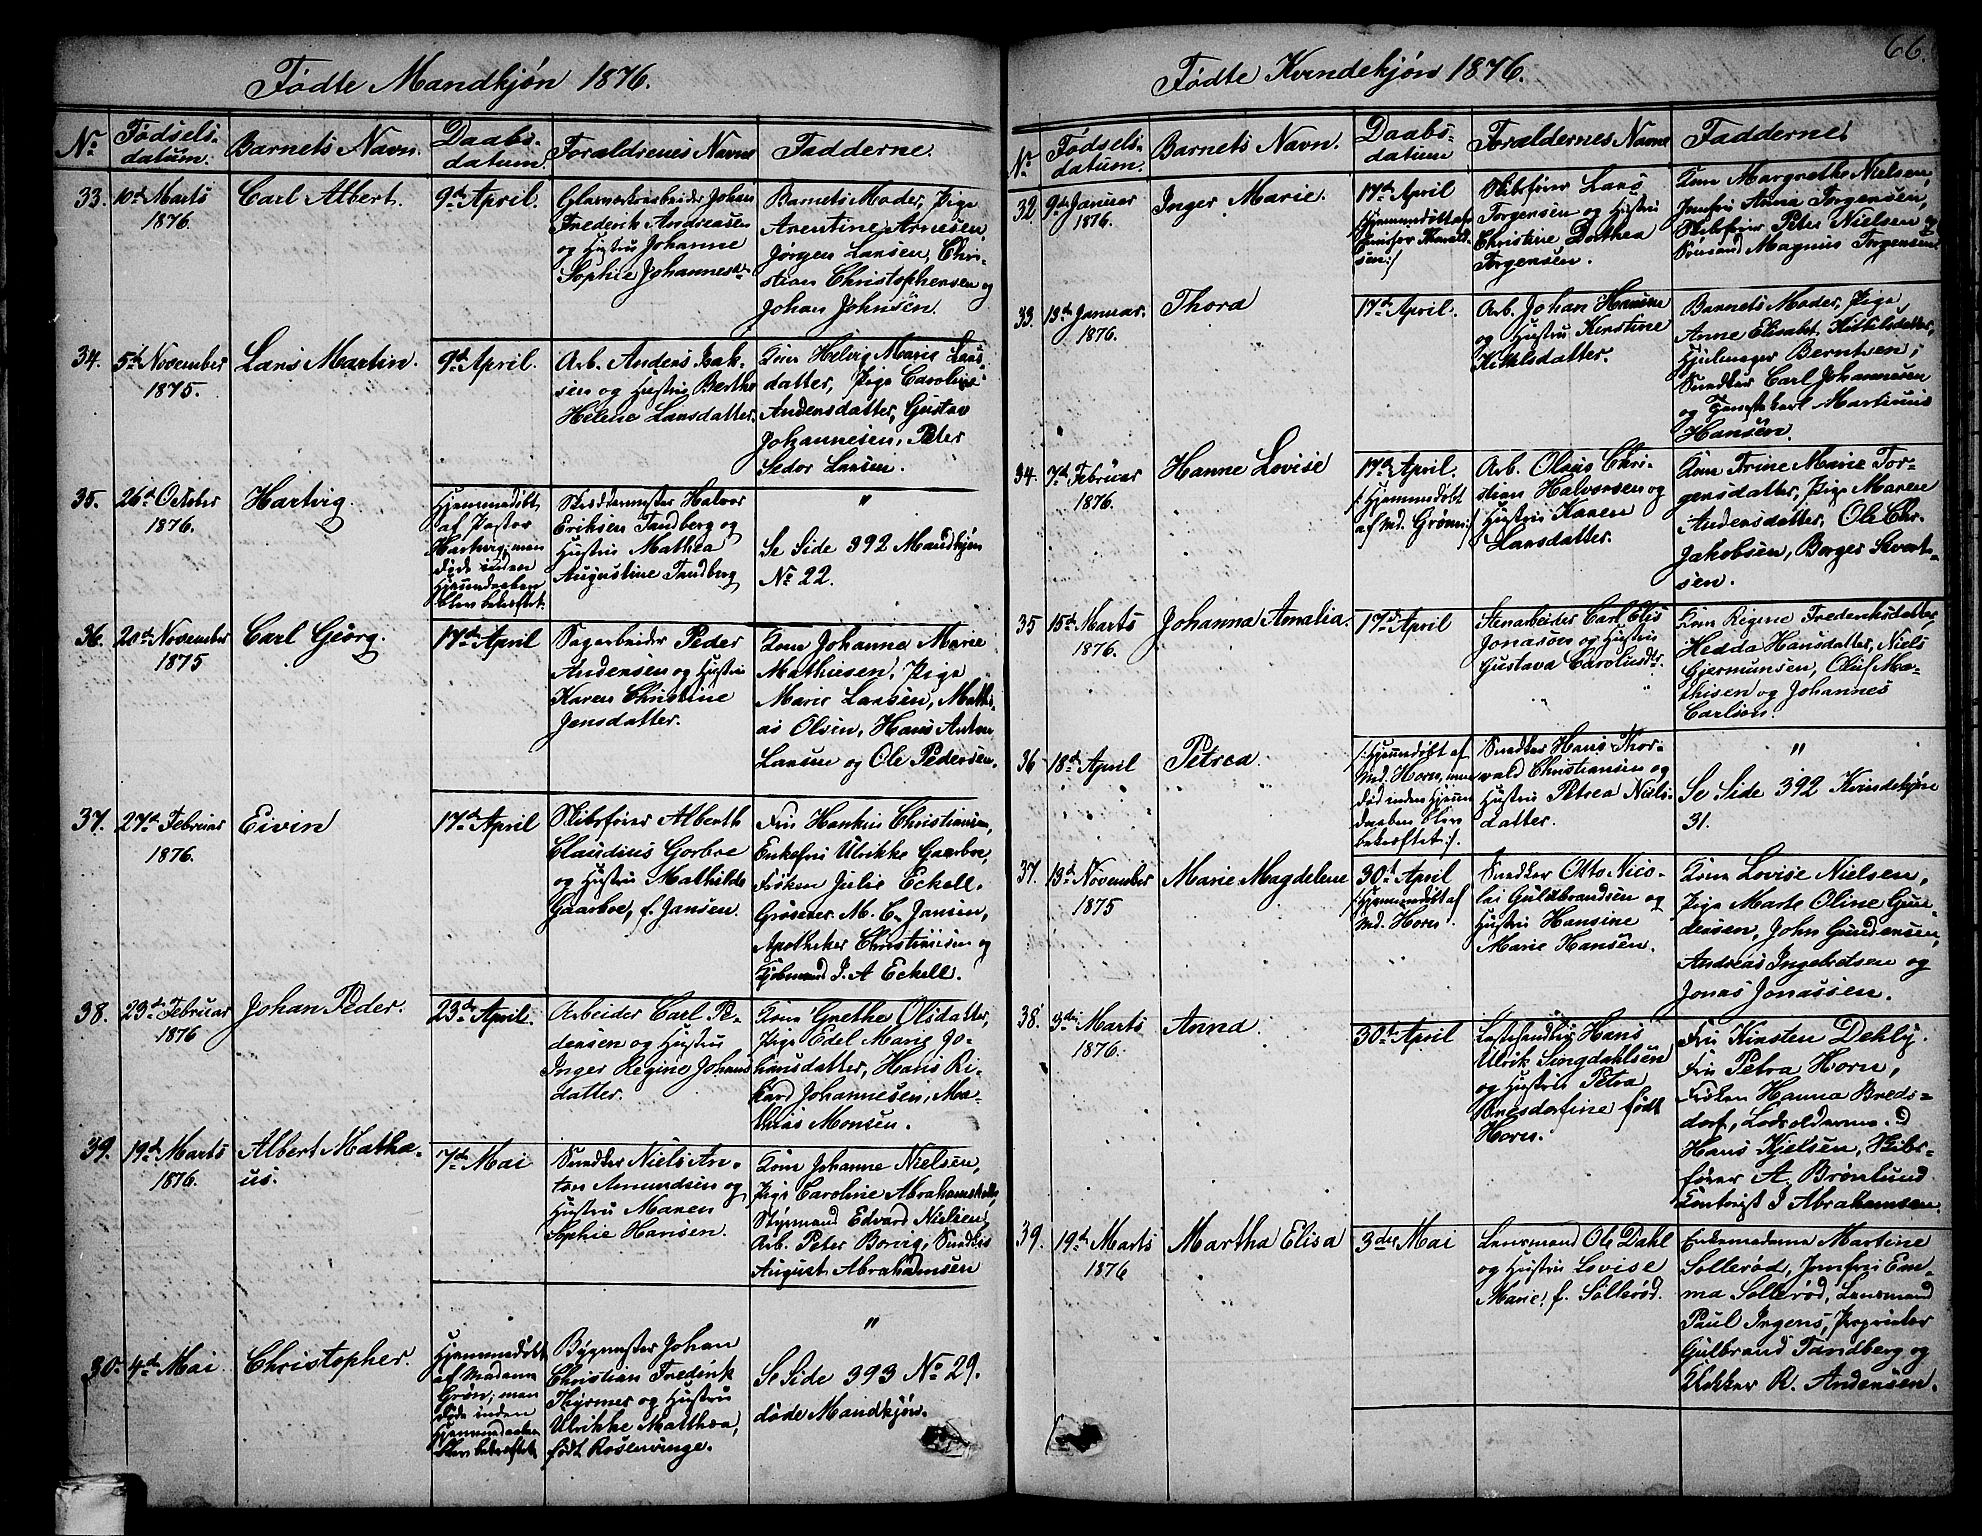 66.
Fødte Mandkjøn 1876.
No
Fødsels-
datum.
Barnets Navn.
Daabs-
datum.
Forældrenes Navne
Fadderne.
33.
10de Marts
1876.
Carl Albert.
9de April.
Glasværksarbeider Johan
Frederik Andreasen
og Hustru Johanne
Sophie Johannesdr
Barnets Moder, Pige
Arentine Arnesen,
Jørgen Larsen, Chri-
stian Christophersen og
Johan Johnsen.
34.
5te November
1875.
Lars Martin.
9de April.
Arb. Anders Isak-
sen og Hustru Berthe
Helene Larsdatter.
Kone Helvig Marie Lars-
datter, Pige Caroline
Andersdatter, Gustav
Johannesen, Peter
Sedor Larsen.
35.
26de October
1876.
Hartvig.
Hjemmedøbt
af Pastor
Hartvig, men
døde inden
Hjemmedaaben
blev bekræftet.
Skræddermester Halvor
Eriksen Tandberg og
Hustru Mathea
Augustine Tandberg
"
Se Side 392 Mandkjøn
No 22.
36.
20de November
1875
Carl Georg.
17de April
Sagarbeider Peder
Andersen og Hustru
Karen Christine
Jensdatter.
Kone Johanne Marie
Mathiesen, Pige
Marie Larsen, Matthi-
as Olsen, Hans Anton
Larsen og Ole Pedersen.
37.
27de Februar
1876.
Eivin
17de April
Skibsfører Alberth
Claudius Gorboe
og Hustru Mathilde
Gaarboe, f. Jansen.
Fru Hankus Christiansen,
Enkefru Ulrikke Gaarboe,
Frøken Julie Eckell.
Grosserer M. C. Jansen,
Apotheker Christiansen og
Kjøbmand J. A Eckell.
38.
23de Februar
1876
Johan Peder.
23de April.
Arbeider Carl Pe-
dersen og Hustru
Inger Regine Johans
datter.
Kone Grethe Olsdatter,
Pige Edel Marie Jo-
hansdatter, Hans Ri-
kard Johannesen, Ma-
thias Monsen.
39.
19de Marts
1876.
Albert Mathæ-
us.
7de Mai
Snedker Niels An-
ton Amundsen og
Hustru Maren
Sophie Hansen.
Kone Johanne Nielsen,
Pige Caroline Abrahamsdatter,
Styrmand Edvard Nielsen,
Arb. Peter Borvig, Snedker
August Abrahamsen
30.
4de Mai
Christopher.
Hjemmedøbt
af Madame
Grøn, men
døde inden
Hjemmedaaben
blev bekræftet
Bygmester Johan
Christian Frederik
Thyrmer og Hustru
Ulrikke Matthea,
født Rosenvinge.
"
Se Side 393 No 29.
døde Mandkjøn.
Fødte Kvindekjøn 1876.
No
Fødsels-
datum.
Barnets Navn.
Daabs-
datum
Forældernes Navne
Faddernes
32.
9de Januar
1876.
Inger Marie.
17de April
Hjemmedøbt af
Jomfru Thorvald-
sen:/
Skibsfører Lars
Torgensen og Hustru
Christine Dorthea
Torgensen.
Kone Margrethe Nielsen,
Jomfru Anna Torgensen,
Skibsfører Peter Nielsen og
Sømand Magnus Torgensen.
33.
13de Januar.
1876.
Thora
17de April.
Arb. Johan Hansen
og Hustru Kirstine
Kittilsdatter.
Barnets Moder, Pige
Anne Elisabet Kittilsdatter,
Hjulmager Berntsen,
Snedker Carl Johannesen
og Tjenestekarl Martinus
Hansen.
34.
7de Februar
1876.
Hanne Lovise
17de April.
/:Hjemmedøbt
af Md. Grønn:/
Arb. Olaus Chri-
stian Halvorsen og
Hustru Karen
Larsdatter.
Kone Trine Marie Tor-
gensdatter, Pige Maren
Andersdatter, Ole Chr.
Jakobsen, Borger Svert-
sen.
35
15de Marts
1876.
Johanna Amalia.
17de April
Stenarbeider Carl Elis
Jonason og Hustru
Gustava Carolusdtr.
Kone Regine Frederiksdatter
Hedda Hansdatter, Niels
Gjermunsen, Oluf Ma-
thisen og Johannes
Carlson.
36
18de April
Petrea
/:Hjemmedøbt af
Md. Horn, men
død inden Hjemme
daaben blev
bekræftet:/.
Snedker Hans Thor-
vald Christiansen og
Hustru Petrea Niels-
datter.
"
Se Side 392 Kvindekjøn
31.
37.
13de November
1875
Marie Magdelene
30te April
/:Hjemmedøbt af
Md. Horn.
Snedker Otto Nico-
lai Guldbrandsen og
Hustru Hansine
Marie Hansen.
Kone Lovise Nielsen,
Pige Marte Oline Gun-
dersen, John Gundersen,
Andreas Ingebretsen og
Jonas Jonassen.
38.
3die Marts
1876.
Anna
30te April
Hans
Ulrik Singdahlsen
og Hustru Petra
født
Horn.
Fru Kirsten Dehly.
Fru Petra Horn,
Frøken Hanna Breds-
dorf, Lodsolderm.
Hans Kjelsen, Skibs-
fører A. Brønlund
Kontorist J Abrahamsen.
39.
19de Marts
1876
Martha Elisa
3die Mai
Lensmand Ole Dahl
og Hustru Lovise
Marie, f. Søllerød.
Enkemadame Martine
Søllerød, Jomfru Em-
ma Søllerød, Lensmand
Paul Ingens, Proprietær
Gulbrand Tandberg og
Klokker R. Andersen.